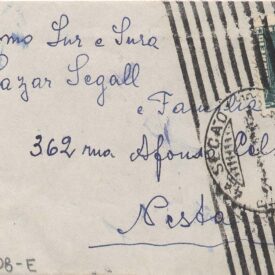 mo Snr e Snra
azar Segall
e Familia
362 rua Afonso Cel
Nesta
SPCAO
08-E